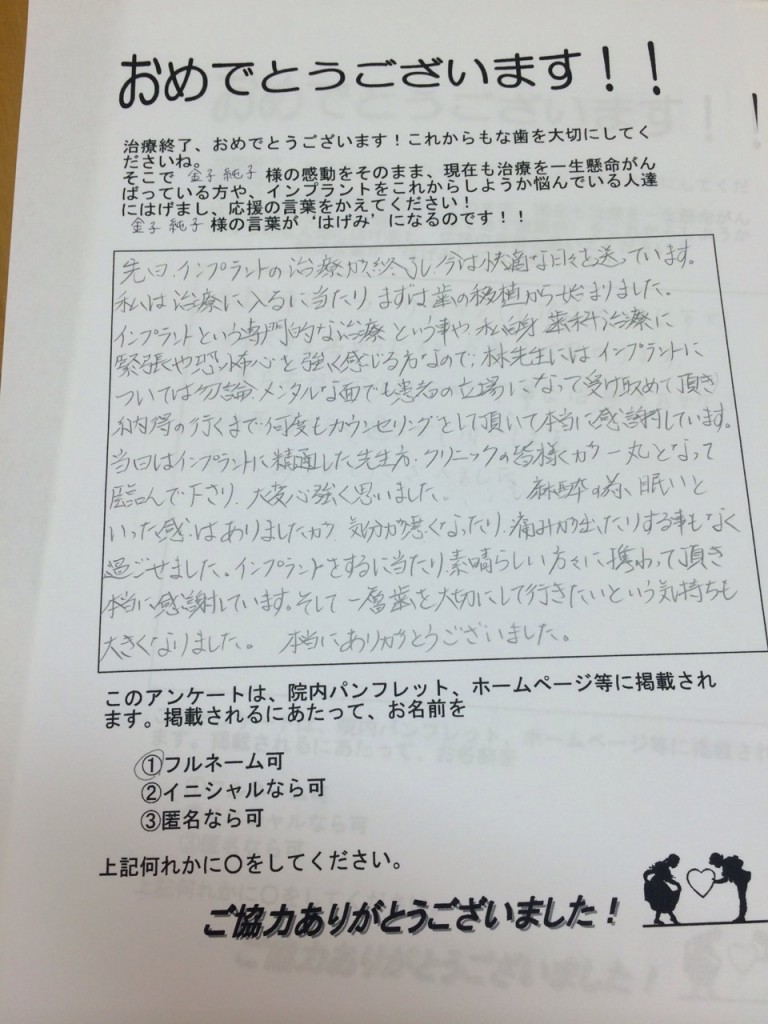 おめでとうございます！！
治療終了、おめでとうございます！これからもな歯を大切にしてく
ださいね。
そこで 金子 純子 様の感動をそのまま、現在も治療を一生懸命がん
ばっている方や、インプラントをこれからしようか悩んでいる人達
にはげまし、応援の言葉をかえてください！
金子 純子 様の言葉が‘はげみ’になるのです！！
先日、インプラントの治療が終了し、今は快適な日々を送っています。
私は治療に入るに当たり、まずは歯の移植から始まりました。
インプラントという専門的な治療という事や、私自身、歯科治療に
緊張や恐怖心を強く感じる方なので、林先生にはインプラントに
ついては勿論、メンタルな面でも患者の立場になって受け取めて頂き
納得の行くまで何度もカウンセリングをして頂いて本当に感謝しています。
当日はインプラントに精通した先生方、クリニックの皆様が一丸となって
臨んで下さり、大変心強く思いました。 麻酔の為、眠いと
いった感はありましたが、気分が悪くなったり、痛みが出たりする事もなく
過ごせました。インプラントをするに当たり、素晴らしい方々に携わって頂き
本当に感謝しています。そして一層歯を大切にして行きたいという気持ちも
大きくなりました。 本当にありがとうございました。
このアンケートは、院内パンフレット、ホームページ等に掲載され
ます。掲載されるにあたって、お名前を
①フルネーム可
②イニシャルなら可
③匿名なら可
上記何れかに〇をしてください。
ご協力ありがとうございました！